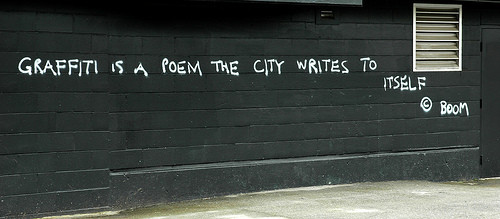 GRAFFITI IS A POEM THE CITY WRITES TO
ITSELF
© BOOM